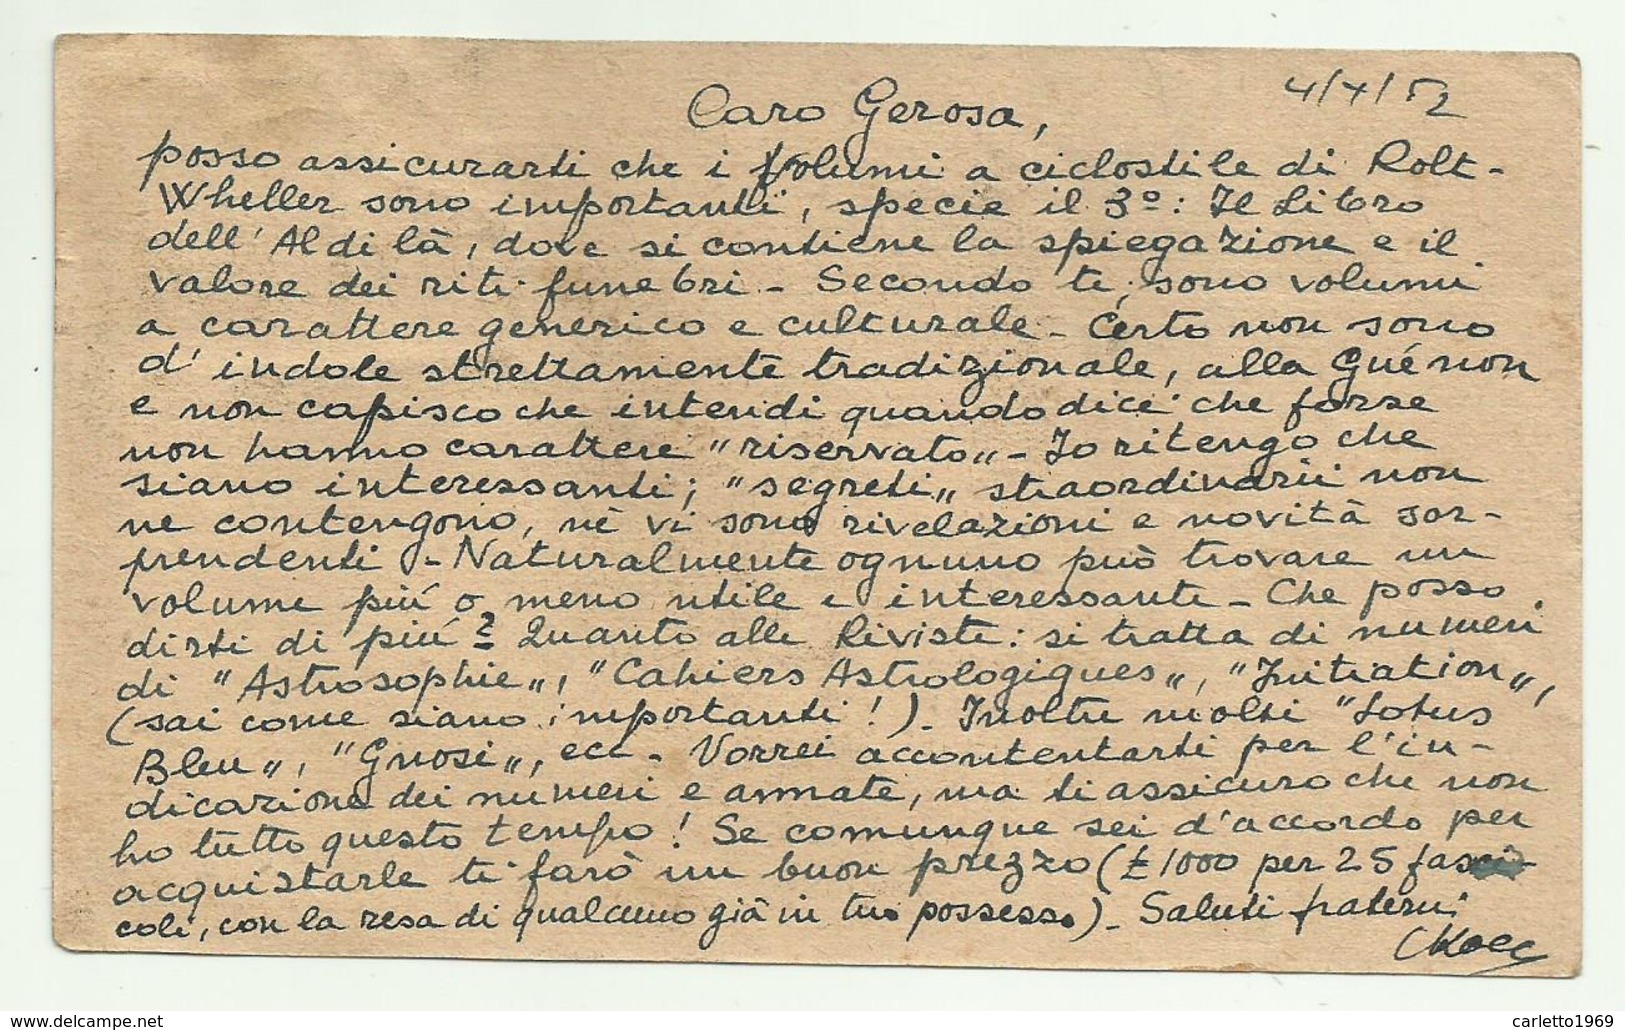 4/4/52
Caro Gerosa,
posso assicurarti che i volumi a ciclostile di Rolt-
Wheller sono importanti, specie il 3º: Il Libro
dell'Al di là, dove si contiene la spiegazione e il
valore dei riti funebri - Secondo te, sono volumi
a carattere generico e culturale - Certo non sono
d'indole strettamente tradizionale, alla Guénon
e non capisco che intendi quando dici che forse
non hanno carattere "riservato" - Io ritengo che
siano interessanti; "segreti" straordinarii non
ne contengono, nè vi sono rivelazioni e novità sor-
prendenti - Naturalmente ognuno può trovare un
volume più o meno utile e interessante - Che posso
dirti di più? Quanto alle Riviste: si tratta di numeri
di "Astrosophie", "Cahiers Astrologiques", "Initiation",
(sai come siano importanti!) - Inoltre molti "Lotus
Bleu", "Gnosi", ecc - Vorrei accontentarti per l'in-
dicazione dei numeri e annate, ma ti assicuro che non
ho tutto questo tempo! Se comunque sei d'accordo per
acquistarle ti farò un buon prezzo (£ 1000 per 25 fasci-
coli, con la resa di qualcuno già in tuo possesso) - Saluti fraterni
carletto1969
www.delcampe.net